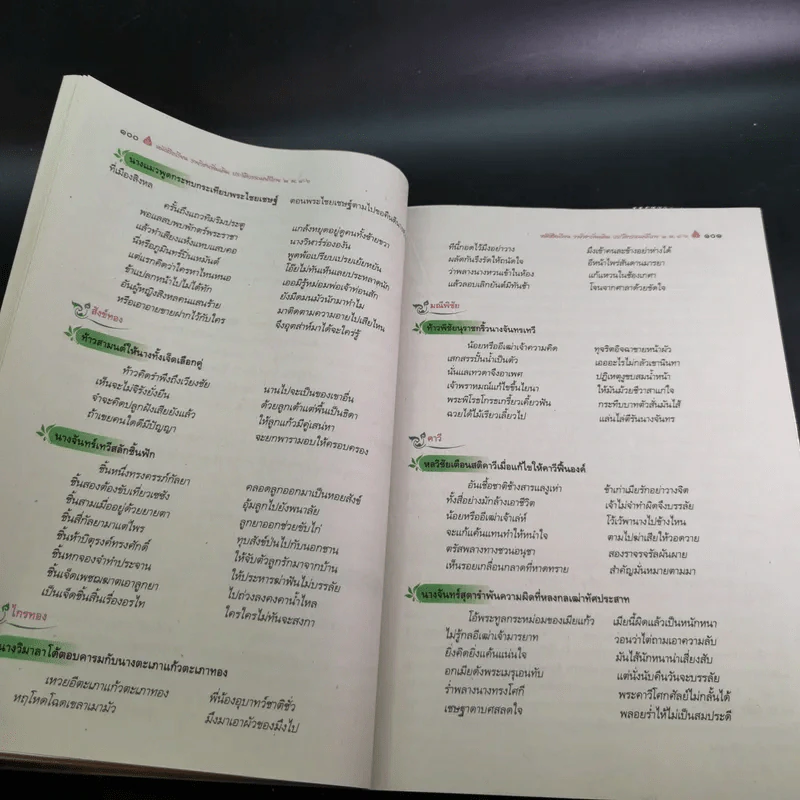 ๑๐๐
นางแมวพูดกระทบกระเทียบพระไชยเชษฐ์ ตอนพระไชยเชษฐ์ตามไปขอคืนดี
ที่เมืองสิงหล
ครั้นถึงแถวทิมริมประตู แกล้งหยุดอยู่ดูคนทั้งซ้ายขวา
พอแลสบพบพักตร์พระราชา นางวิฬาร์ร่องององัน
แล้วทำเสียงแห้งแหบแสบคอ พูดพ้อเปรียบปรายเย้ยหยัน
นี่หรือภูมินทร์ปิ่นเหมันต์ โอ๊ยไม่ทันเห็นเลยประหลาดนัก
แต่แรกคิดว่าใครหาไหนหนอ เออมิรู้หม่อมพ่อเจ้าท่อนสัก
ช้าแปลกหน้าไปไม่ได้ทัก ยังมีตมนมัวนักมาทำไม
อันผู้หญิงสิงหลคนแสนร้าย มาติดตามความอายไปเสียไหน
หรือเอาอายขายฝากไว้กับใคร จึงอุตส่าห์มาได้จะใคร่รู้
สังข์ทอง
ท้าวสามนต์ให้นางทั้งเจ็ดเลือกคู่
ท้าวคิดรำพึงถึงเวียงชัย นานไปจะเป็นของเขาอื่น
เห็นจะไม่จีรังยั่งยืน ด้วยลูกเต้าแต่พื้นเป็นธิดา
จำจะคิดปลูกฝังเสียยังแล้ว ให้ลูกแก้วมีคู่เสน่หา
ถ้าเขยคนใดดีมีปัญญา จะยกพารามอบให้ครอบครอง
นางจันทร์เทวีสลักชิ้นฟัก
ชิ้นหนึ่งทรงครรภ์กัลยา คลอดลูกออกมาเป็นหอยสังข์
ชิ้นสองต้องขับเที่ยวเซซัง อุ้มลูกไปยังพนาลัย
ชิ้นสามเมื่ออยู่ด้วยยายตา ลูกยาออกช่วยขับไก่
ชิ้นสี่กัลยามาแต่ไพร ทุบสังข์ป่นไปกับนอกชาน
ชิ้นห้าบิตุรงค์ทรงศักดิ์ ให้จับตัวลูกรักมาจากบ้าน
ชิ้นหกจองจำทำประจาน ให้ประหารฆ่าฟันไม่บรรลัย
ชิ้นเจ็ดเพชฌฆาตเอาลูกยา ไปถ่วงลงคงคาน้ำไหล
เป็นเจ็ดชิ้นสิ้นเรื่องอรไท ใครใครไม่ทันจะสงกา
ไกรทอง
นางวิมาลาโต้ตอบคารมกับนางตะเภาแก้วตะเภาทอง
เหวยอีตะเภาแก้วตะเภาทอง พี่น้องอุบาทว์ชาติชั่ว
หฤโหดโฉดเขลาเมามัว มึงมาเอาผัวของมึงไป
๑๐๑
ทีนี้กอดไว้มึงอย่าวาง มึงเข้าคนละข้างอย่าห่างได้
ผลัดกันรึงรัดให้ถนัดใจ อีหน้าไพร่สันดานมารยา
ว่าพลางนางหวนเข้าในห้อง แก้แหวนในช้องเกศา
แล้วลอบเลิกยันต์มิทันช้า โจนจากศาลาด้วยขัดใจ
มณีพิชัย
ท้าวพิชัยนุราชกริ้วนางจันทรเทวี
น้อยหรืออีเฒ่าเจ้าความคิด ทุจริตอิจฉาขายหน้าผัว
เสกสรรปั้นน้ำเป็นตัว เออะไรไม่กลัวเขานินทา
นั่นแลเทวดาจึงอาเพศ ปฏิเหตุงูขบสมน้ำหน้า
เจ้าพราหมณ์แก้ไขขึ้นไยนา ให้มันม้วยชีวาสาแก่ใจ
พระพิโรธโกรธเกรี้ยวเคี้ยวฟัน กระทืบบาทตัวสั่นมันไส้
ฉวยได้ไม้เรียวเลี้ยวไป แล่นไล่ตีรันนางจันทร
คาวี
หลวิชัยเตือนสติคาวีเมื่อแก้ไขให้คาวีฟื้นองค์
อันเชื้อชาติช้างสารแลงูเห่า ข้าเก่าเมียรักอย่าวางจิต
ทั้งสี่อย่างมักล้างเอาชีวิต เจ้าไม่จำทำผิดจึงบรรลัย
น้อยหรืออีเฒ่าเจ้าเล่ห์ โว้เว้พานางไปข้างไหน
จะแก้แค้นแทนทำให้หนำใจ ตามไปฆ่าเสียให้วอดวาย
ตรัสพลางทางชวนอนุชา สองราจรจรัลผันผาย
เห็นรอยเกลื่อนกลาดที่หาดทราย สำคัญมั่นหมายตามมา
นางจันทร์สุดารำพันความผิดที่หลงกลเฒ่าทัศประสาท
โอ้พระทูลกระหม่อมของเมียแก้ว เมียนี้ผิดแล้วเป็นหนักหนา
ไม่รู้กลอีเฒ่าเจ้ามารยาท วอนว่าไต่ถามเอาความลับ
ยิ่งคิดยิ่งแค้นแน่นใจ มันไส้นักหนาน่าเสี่ยงสับ
อกเมียดังพระเมรุเอนทับ แต่นั่งนับคืนวันจะบรรลัย
ร่ำพลางนางทรงโศกี พระคาวีโศกศัลย์ไม่กลั้นได้
เชษฐาดาบศสลดใจ พลอยร่ำไห้ไม่เป็นสมประดี